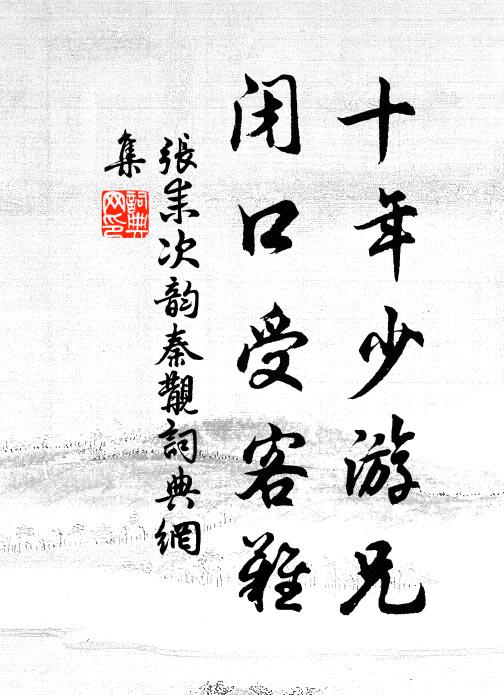 十年少游兄
闭口受客难
張耒次韵秦觀詞典網
集
詞典
网印